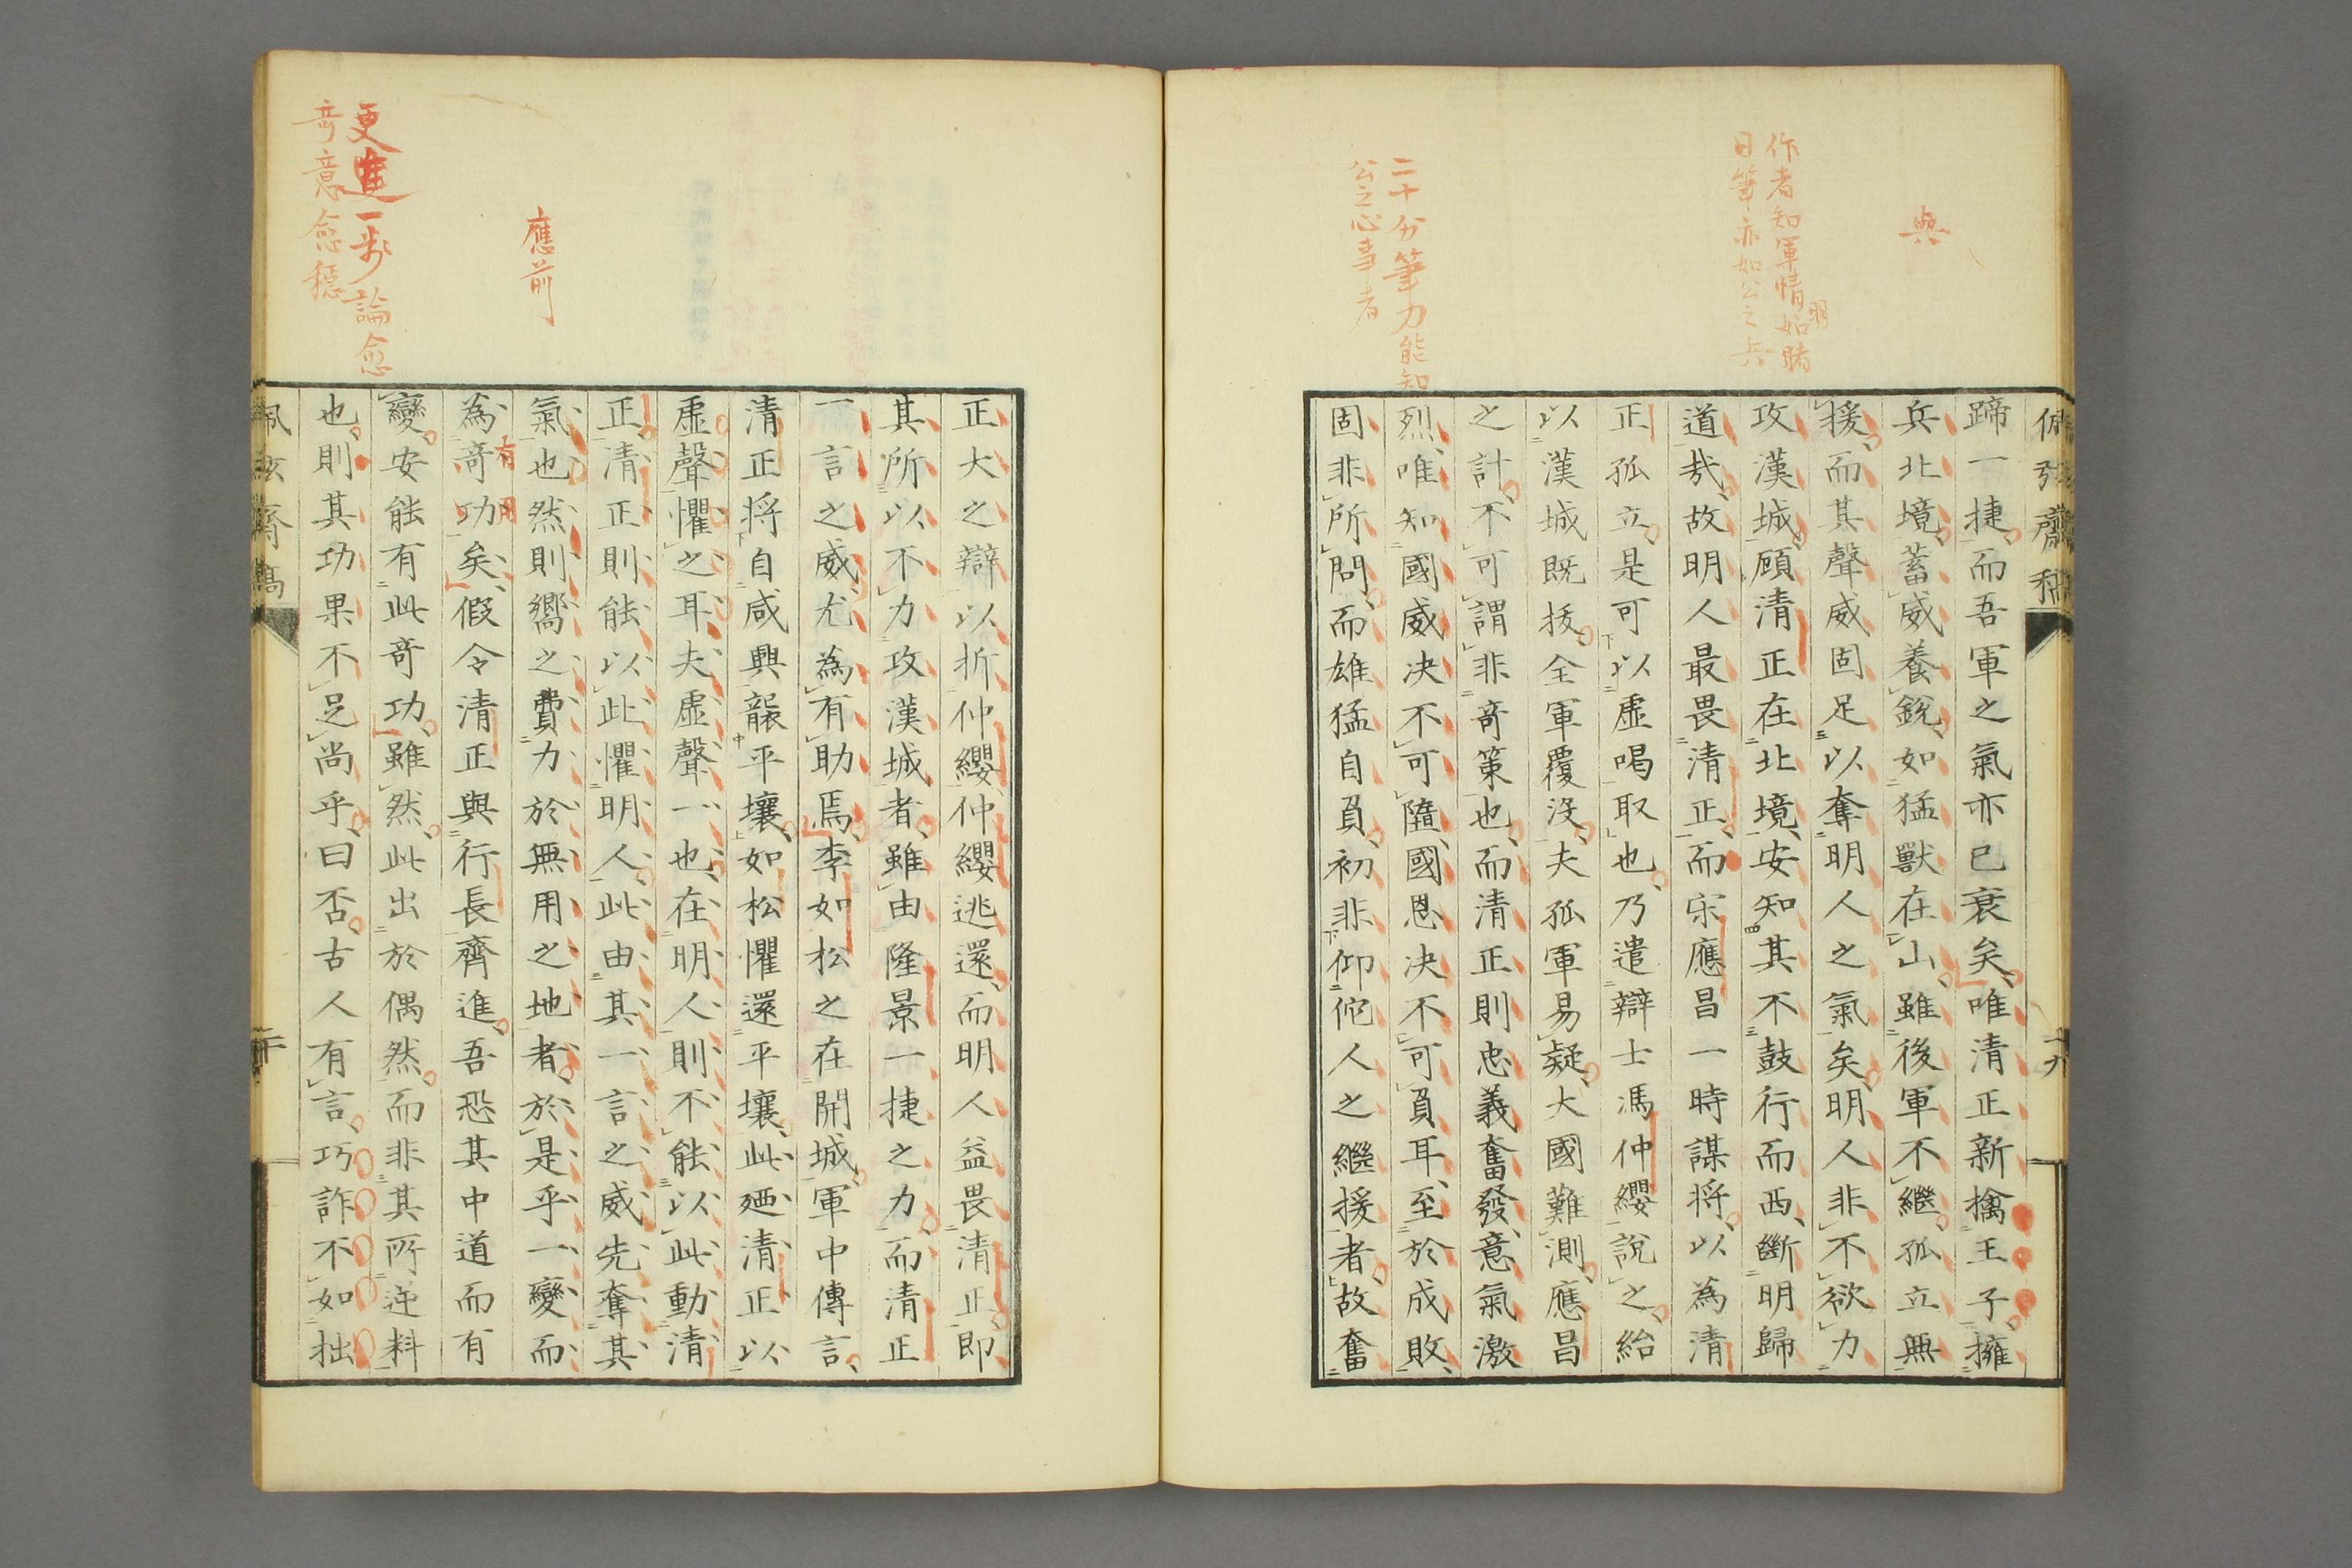 典
作者知軍情如明睹
日筆亦如公之兵
二十分筆力能知
公之心事者
蹄一捷而吾軍之氣亦已衰矣唯清正新擒王子擁
兵北境蓄威養銳如猛獸在山雖後軍不繼孤立無
援而其聲威固足以奪明人之氣矣明人非不欲力
攻漢城顧清正在北境安知其不鼓行而西斷明歸
道哉故明人最畏清正而宋應昌一時謀将以為清
正孤立是可以虛喝取也乃遣辯士馮仲纓說之紿
以漢城既拔全軍覆没夫孤軍易疑大國難測應昌
之計不可謂非奇策也而清正則忠義奮發意氣激
烈唯知國威决不可隳國恩决不可負耳至於成敗
固非所問而雄猛自負初非仰佗人之繼援者故奮
十九
應前
更進一步論愈
奇意愈穩
正大之辯以折仲纓仲纓逃還而明人益畏清正即
其所以不力攻漢城者雖由隆景一捷之力而清正
一言之威尤為有助焉李如松之在開城軍中傳言
清正将自咸興襲平壤如松懼還平壤此廼清正以
虛聲懼之耳夫虛聲一也在明人則不能以此動清
正清正則能以此懼明人此由其一言之威先奪其
氣也然則嚮之費力於無用之地者於是乎一變而
為有用奇功矣假令清正與行長齊進吾恐其中道而有
變安能有此奇功雖然此出於偶然而非其所逆料
也則其功果不足尚乎曰否古人有言巧詐不如拙
佩弦齋稿
二十